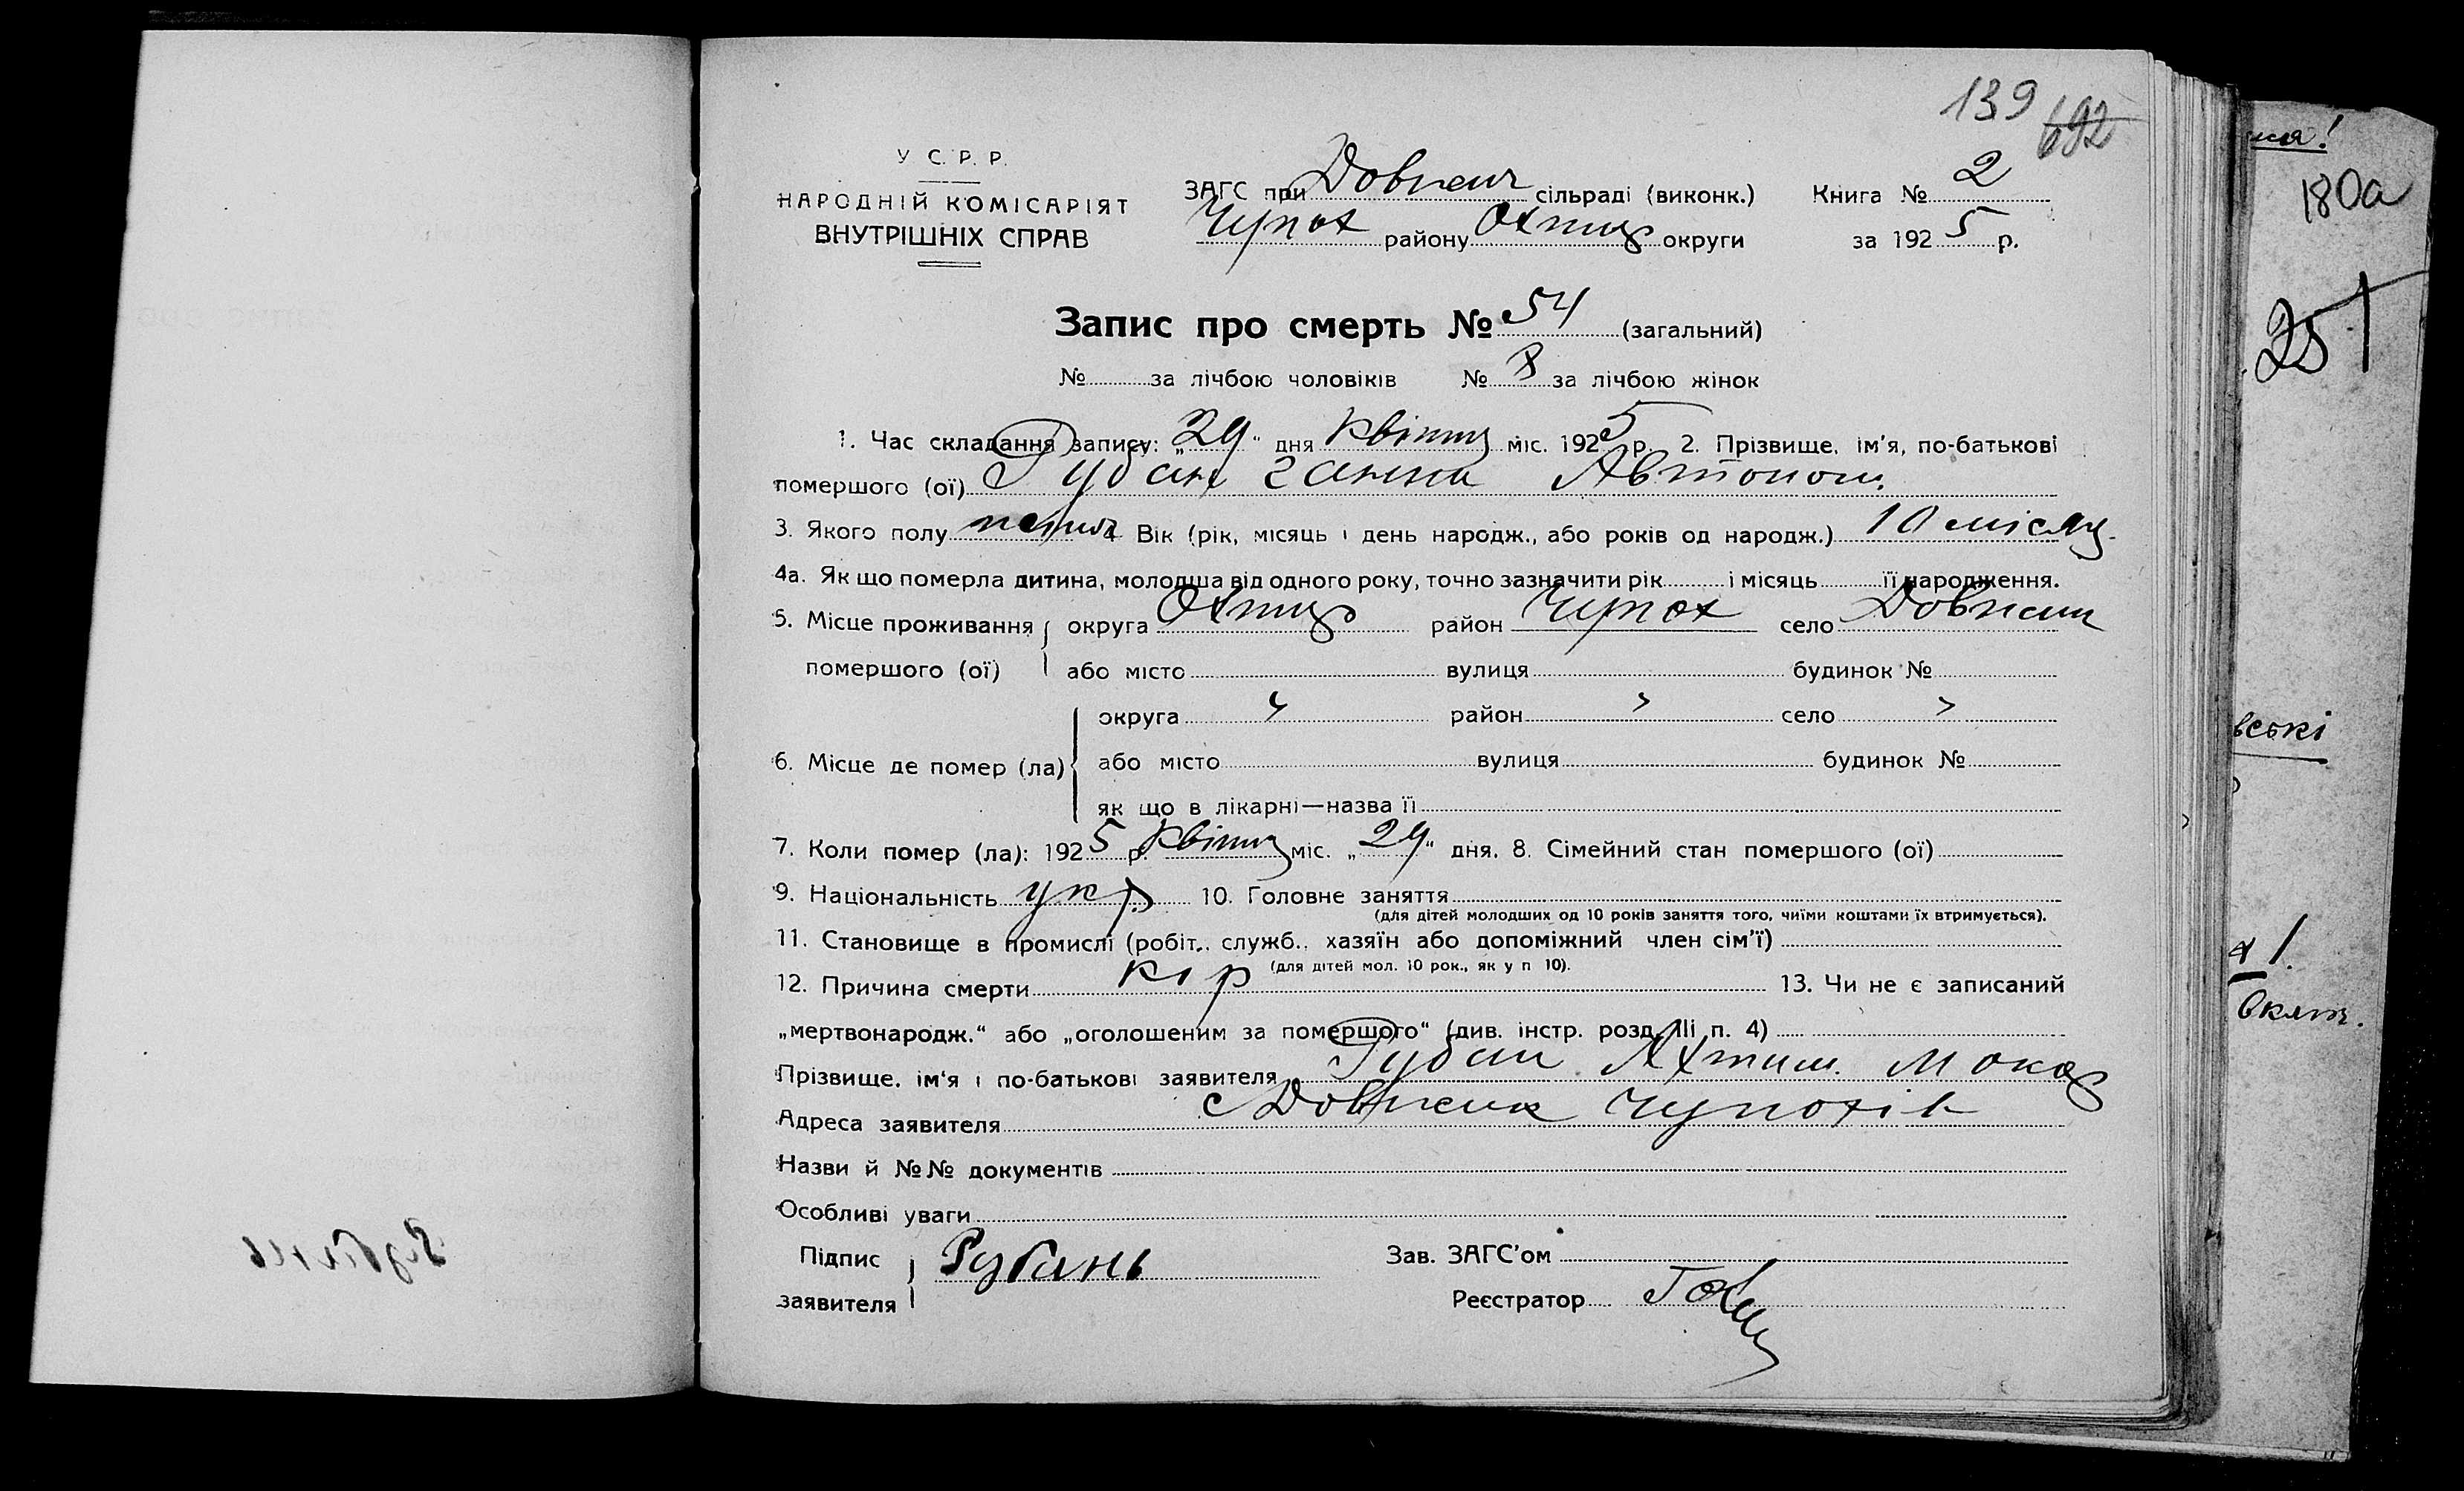 139 692
У С. Р. Р.
НАРОДНІЙ КОМІСАРІЯТ
ВНУТРІШНІХ СПРАВ
ЗАГС при Довжан сільраді (виконк.) Книга № 2
Чупах району Охтир округи за 1925 р.
Запис про смерть № 54 (загальний)
№ за лічбою чоловіків № 8 за лічбою жінок
1. Час складання запису: „29“ дня Квітня міс. 1925 р. 2. Прізвище, ім’я, по-батькові
помершого (ої) Рубан Ганна Автоном.
3. Якого полу 4 Вік (рік, місяць і день народж., або років од народж.) 10 місяц.
4а. Як що померла дитина, молодша від одного року, точно зазначити рік і місяць її народження.
5. Місце проживання помершого (ої) округа Охтир район Чупах село Довжан
або місто вулиця будинок №
6. Місце де помер (ла) округа " район " село "
або місто вулиця будинок №
як що в лікарні—назва її
7. Коли помер (ла): 1925 р. Квітня міс. „29“ дня. 8. Сімейний стан помершого (ої)
9. Національність укр. 10. Головне заняття
(для дітей молодших од 10 років заняття того, чиїми коштами їх втримується).
11. Становище в промислі (робіт., служб., хазяїн або допоміжний член сім’ї)
(для дітей мол. 10 рок., як у п 10).
12. Причина смерти кір 13. Чи не є записаний
„мертвонародж.“ або „оголошеним за помершого“ (див. інстр. розд. III п. 4)
Прізвище, ім’я і по-батькові заявителя Рубан Мокар
Адреса заявителя с Довжик Чупахів
Назви й №№ документів
Особливі уваги
Підпис заявителя Рубань Зав. ЗАГС’ом
Реєстратор
180а
251
вські